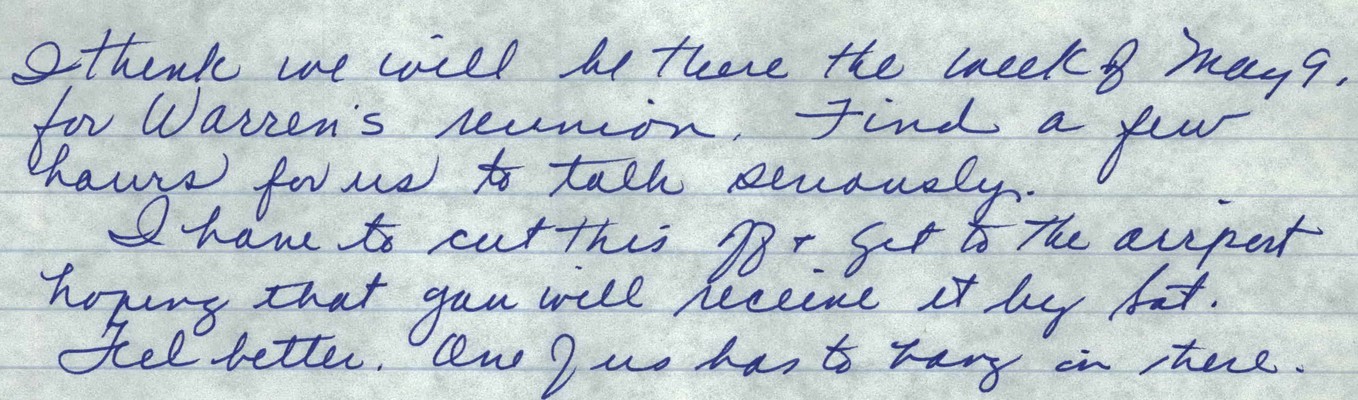 I think we will be there the week of May 9,
for Warren's reunion. Find a few
hours for us to talk seriously.
I have to cut this off + get to the airport
hoping that you will receive it by Sat.
Feel better. One of us has to hang in there.